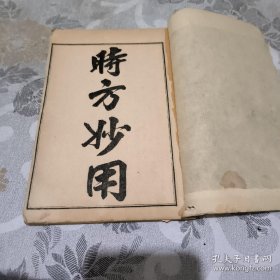 時方妙用
孔夫子旧书网